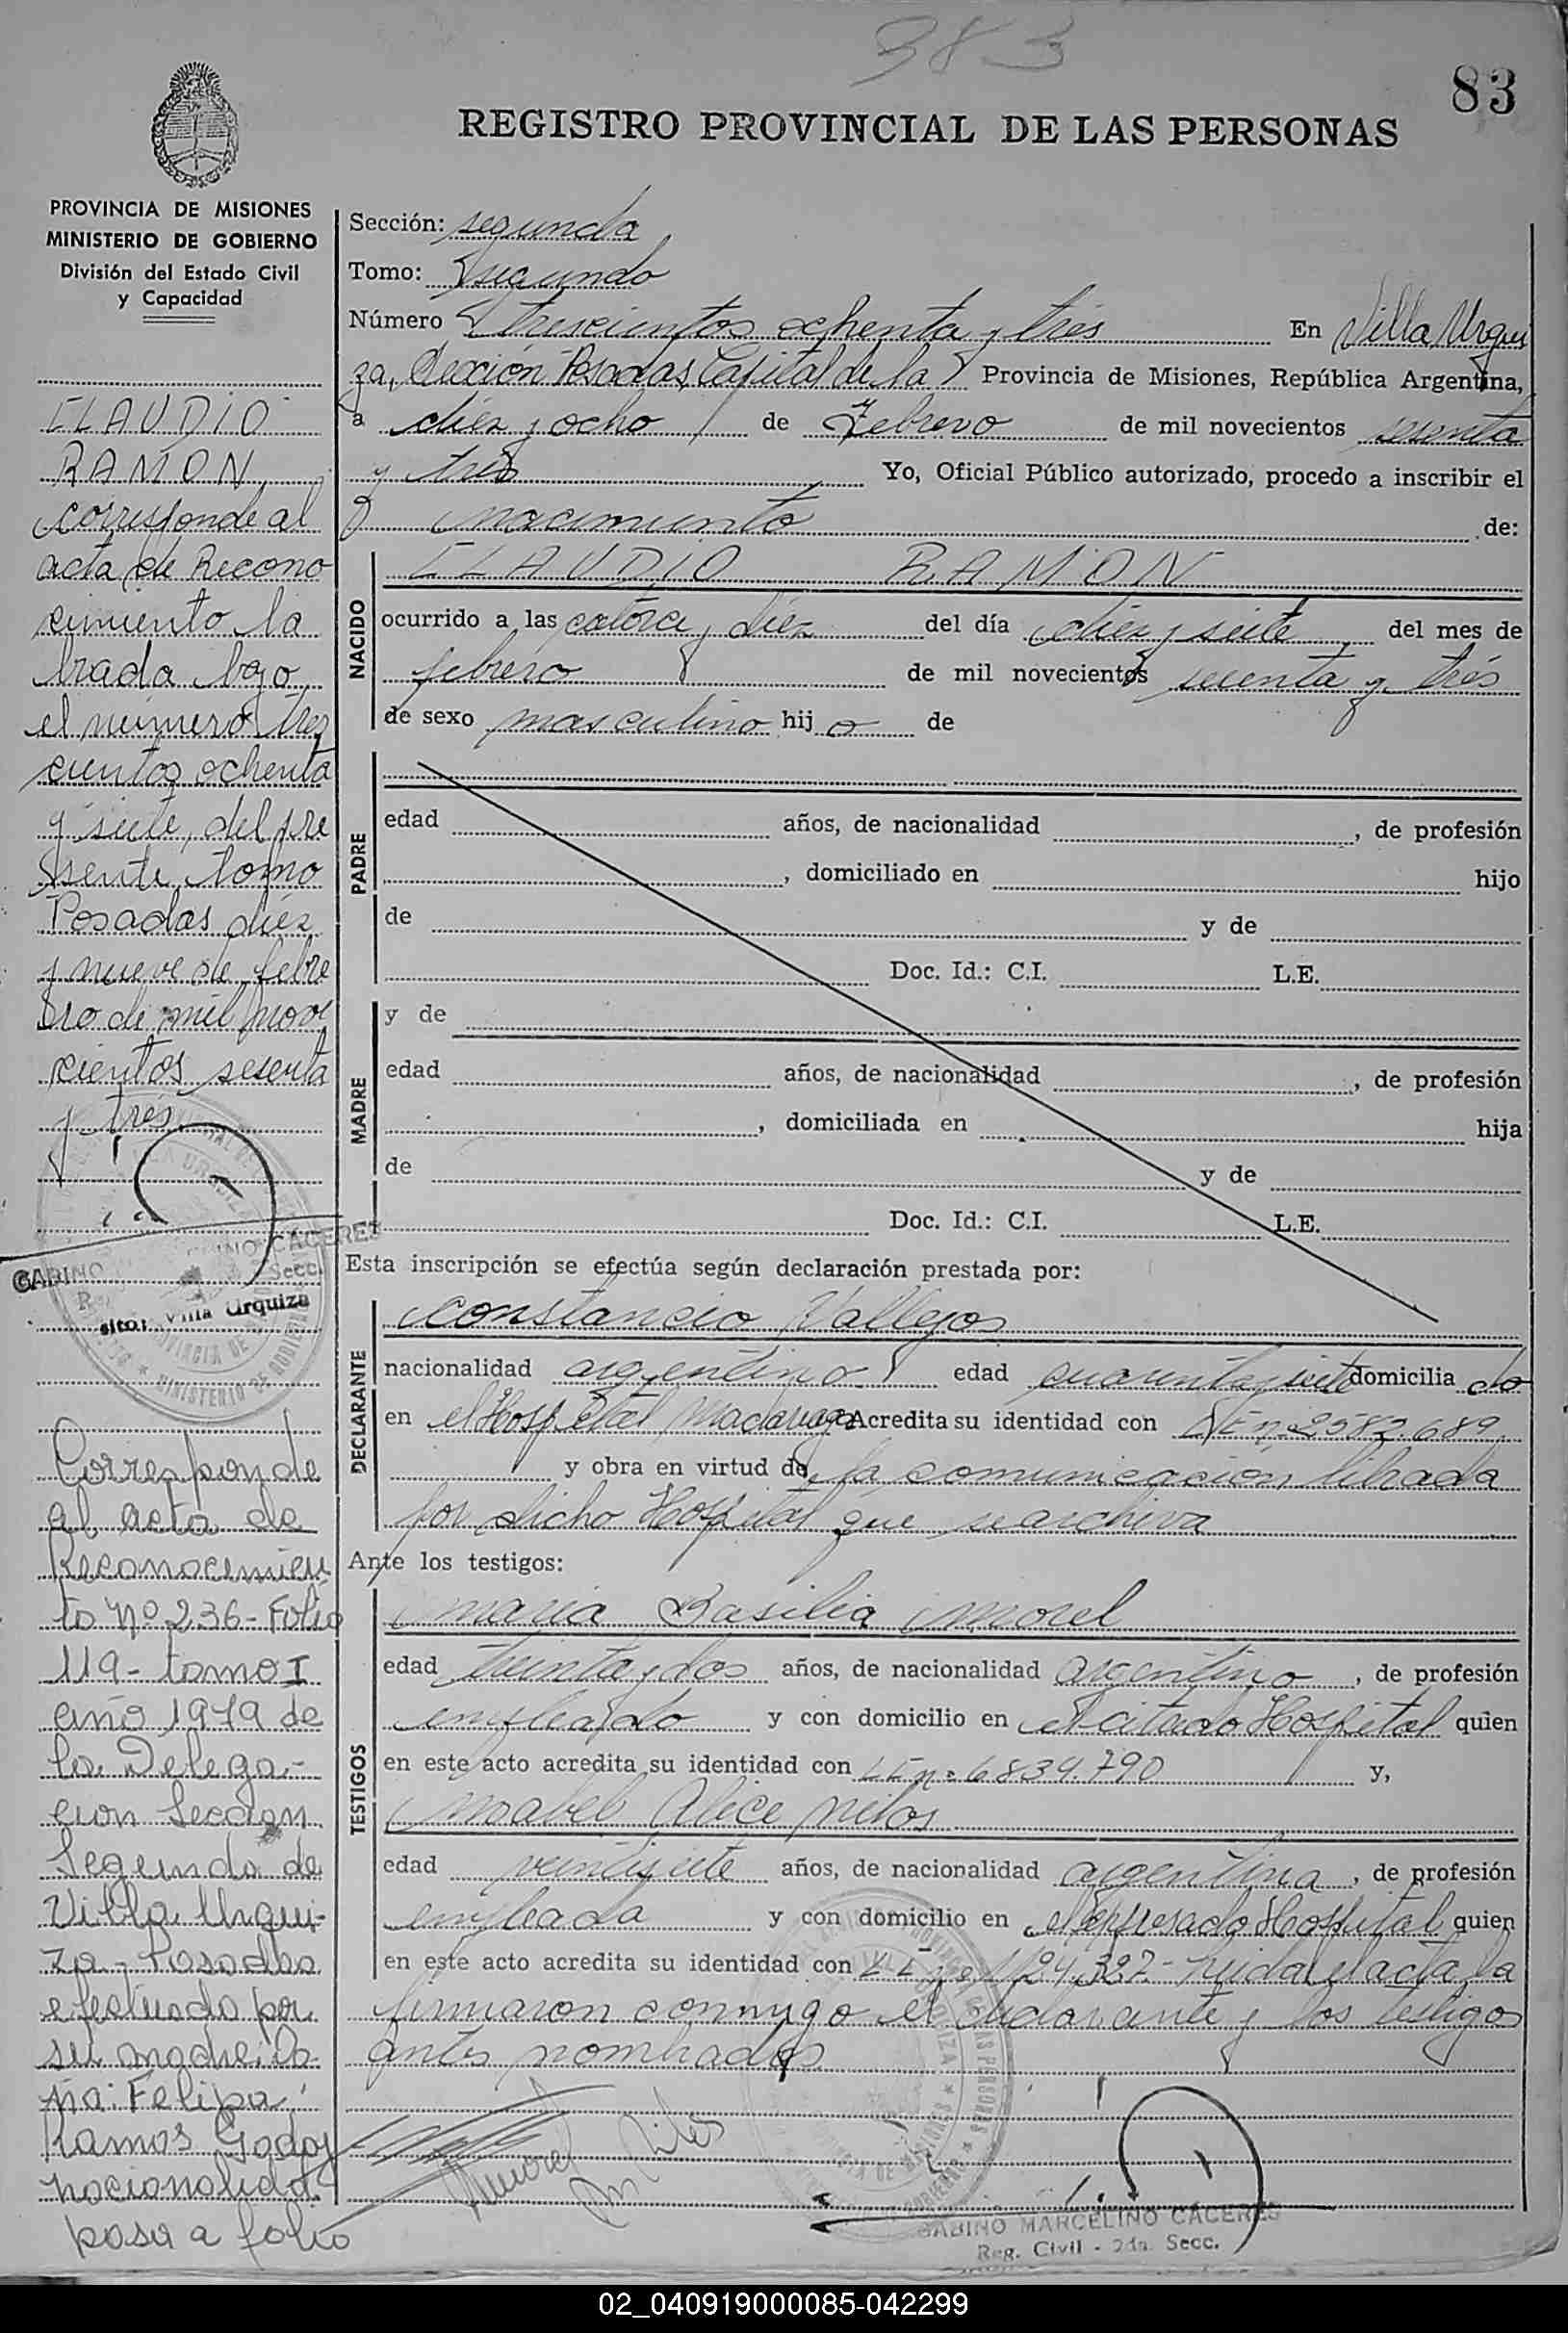 383
83
REGISTRO PROVINCIAL DE LAS PERSONAS
PROVINCIA DE MISIONES
MINISTERIO DE GOBIERNO
División del Estado Civil
y Capacidad
CLAUDIO
RAMON
corresponde al
acta de Recono
cimiento la
brada bajo
el número tres
cientos ochenta
y siete, del pre
sente tomo
Posadas diez
y nueve de febre
ro de mil nove
cientos sesenta
y trés
GABINO CACERES
Secc.
sito: Villa Urquiza
Corresponde
al acta de
Reconocimien
to Nº 236 - Folio
119 - tomo I
año 1979 de
la Delega-
cion Seccion
Segunda de
Villa Urqui-
za - Posadas
efectuado por
su madre: Do
ña: Felipa
Ramos Godoy
nacionalidad
pasa a folio
Sección: segunda
Tomo: segundo
Número trescientos ochenta y trés En Villa Urqui
za, Sección Posadas Capital de la Provincia de Misiones, República Argentina,
a diez y ocho de Febrero de mil novecientos sesenta
y trés Yo, Oficial Público autorizado, procedo a inscribir el
nacimiento de:
NACIDO
CLAUDIO RAMON
ocurrido a las catorce y diez del día diez y siete del mes de
febrero de mil novecientos sesenta y trés
de sexo masculino hij o de
PADRE
edad años, de nacionalidad , de profesión
, domiciliado en hijo
de y de
Doc. Id.: C.I. L.E.
MADRE
y de
edad años, de nacionalidad , de profesión
, domiciliada en hija
de y de
Doc. Id.: C.I. L.E.
Esta inscripción se efectúa según declaración prestada por:
DECLARANTE
Constancio Vallejos
nacionalidad argentino edad cuarenta y siete domicilia do
en el Hospital Madariaga Acredita su identidad con LE nº 2582.689
y obra en virtud de la comunicación librada
por dicho Hospital que se archiva
Ante los testigos:
TESTIGOS
maria Basilia morel
edad treinta y dos años, de nacionalidad argentino , de profesión
empleado y con domicilio en el citado Hospital quien
en este acto acredita su identidad con LE nº 6834.790 y,
mabel Alice
edad veintisiete años, de nacionalidad argentina , de profesión
empleada y con domicilio en el expresado Hospital quien
en este acto acredita su identidad con 24.327 - Leida el acta la
firmaron conmigo el declarante y los testigos
antes nombrados
GABINO MARCELINO CACERES
Reg. Civil - 2da. Secc.
02_040919000085-042299